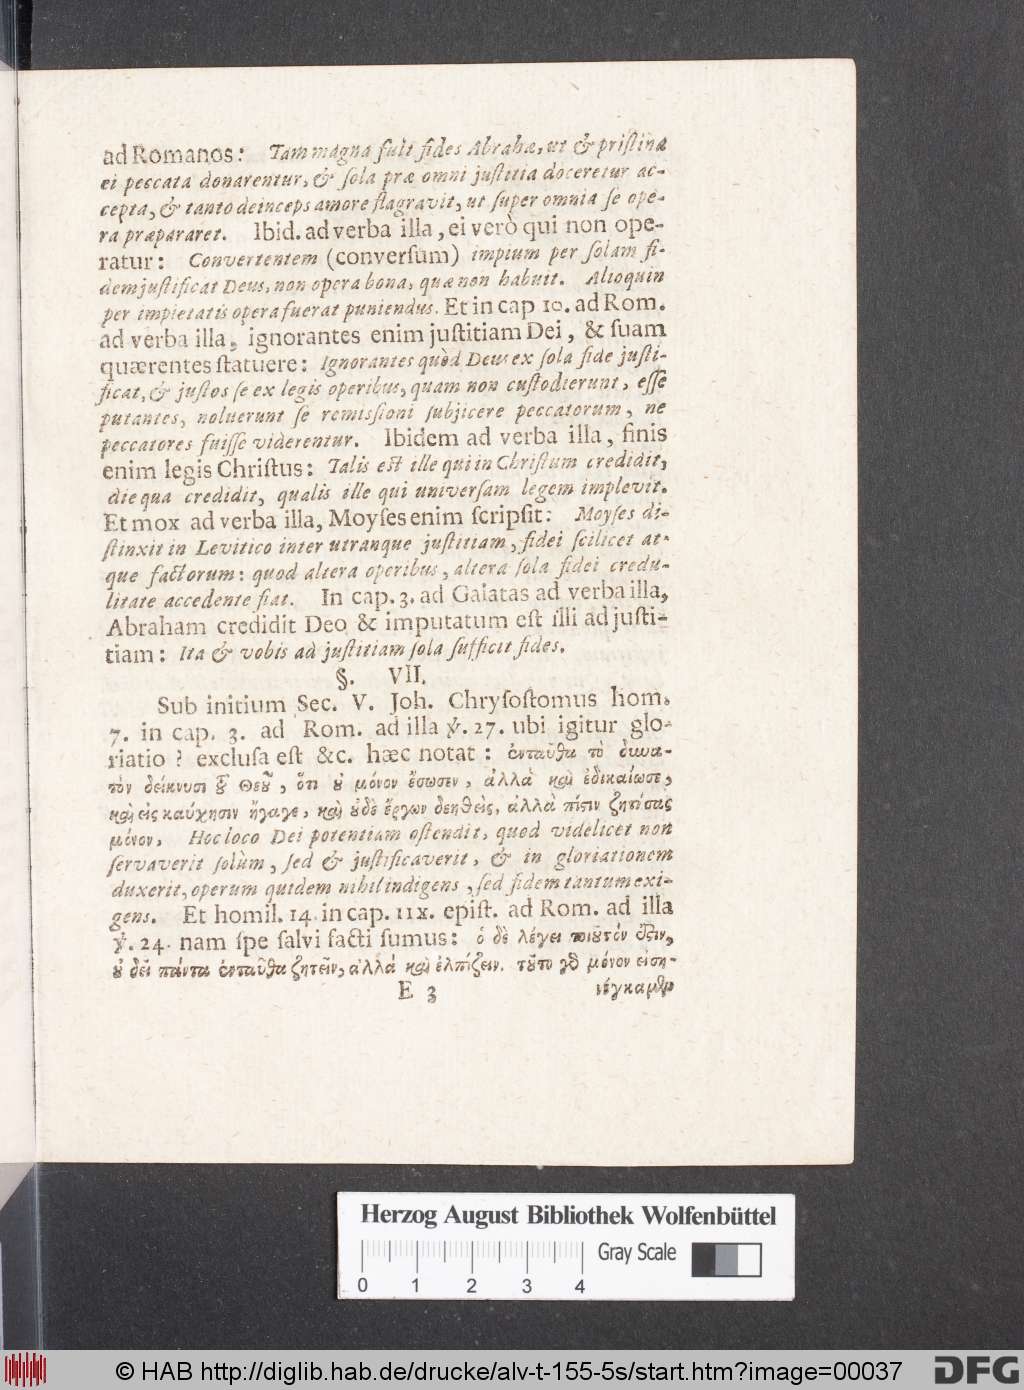 ad Romanos: Tam magna fuit fides Abrahæ, ut & pristina
ei peccata donarentur, & sola præ omni justitia doceretur ac-
cepta, & tanto deinceps amore flagravit, ut super omnia se ope-
ra præpararet. Ibid. ad verba illa, ei verò qui non ope-
ratur: Convertentem (conversum) impium per solam fi-
dem justificat Deus, non opera bona, quæ non habuit. Alioquin
per impietatis opera fuerat puniendus. Et in cap 10. ad Rom.
ad verba illa, ignorantes enim justitiam Dei, & suam
quærentes statuere: Ignorantes quòd Deus ex sola fide justi-
ficat, & justos se ex legis operibus, quam non custodierunt, esse
putantes, noluerunt se remissioni subjicere peccatorum, ne
peccatores fuisse viderentur. Ibidem ad verba illa, finis
enim legis Christus: Talis est ille qui in Christum credidit,
die qua credidit, qualis ille qui universam legem implevit.
Et mox ad verba illa, Moyses enim scripsit: Moyses di-
stinxit in Levitico inter utranque justitiam, fidei scilicet at-
que factorum: quod altera operibus, altera sola fidei credu-
litate accedente fiat. In cap. 3. ad Galatas ad verba illa,
Abraham credidit Deo & imputatum est illi ad justi-
tiam: Ita & vobis ad justitiam sola sufficit fides.
§. VII.
Sub initium Sec. V. Joh. Chrysostomus hom.
7. in cap. 3. ad Rom. ad illa ℣. 27. ubi igitur glo-
riatio? exclusa est &c. hæc notat: ἐνταῦθα τὸ δυνα-
τὸν δείκνυσι τοῦ Θεοῦ, ὅτι οὐ μόνον ἔσωσεν, ἀλλὰ καὶ ἐδικαίωσε,
καὶ εἰς καύχησιν ἤγαγε, καὶ οὐδὲ ἔργων δεηθεὶς, ἀλλὰ πίστιν ζητήσας
μόνον, Hoc loco Dei potentiam ostendit, quod videlicet non
servaverit solùm, sed & justificaverit, & in gloriationem
duxerit, operum quidem nihil indigens, sed fidem tantum exi-
gens. Et homil. 14. in cap. IIX. epist. ad Rom. ad illa
℣. 24. nam spe salvi facti sumus: ὁ δὲ λέγει τοιοῦτόν ἐστιν,
οὐ δεῖ πάντα ἐνταῦθα ζητεῖν, ἀλλὰ καὶ ἐλπίζειν. τοῦτο γὰρ μόνον εἰση-
E 3 νέγκαμεν
Herzog August Bibliothek Wolfenbüttel
Gray Scale
0 1 2 3 4
© HAB http://diglib.hab.de/drucke/alv-t-155-5s/start.htm?image=00037
DFG